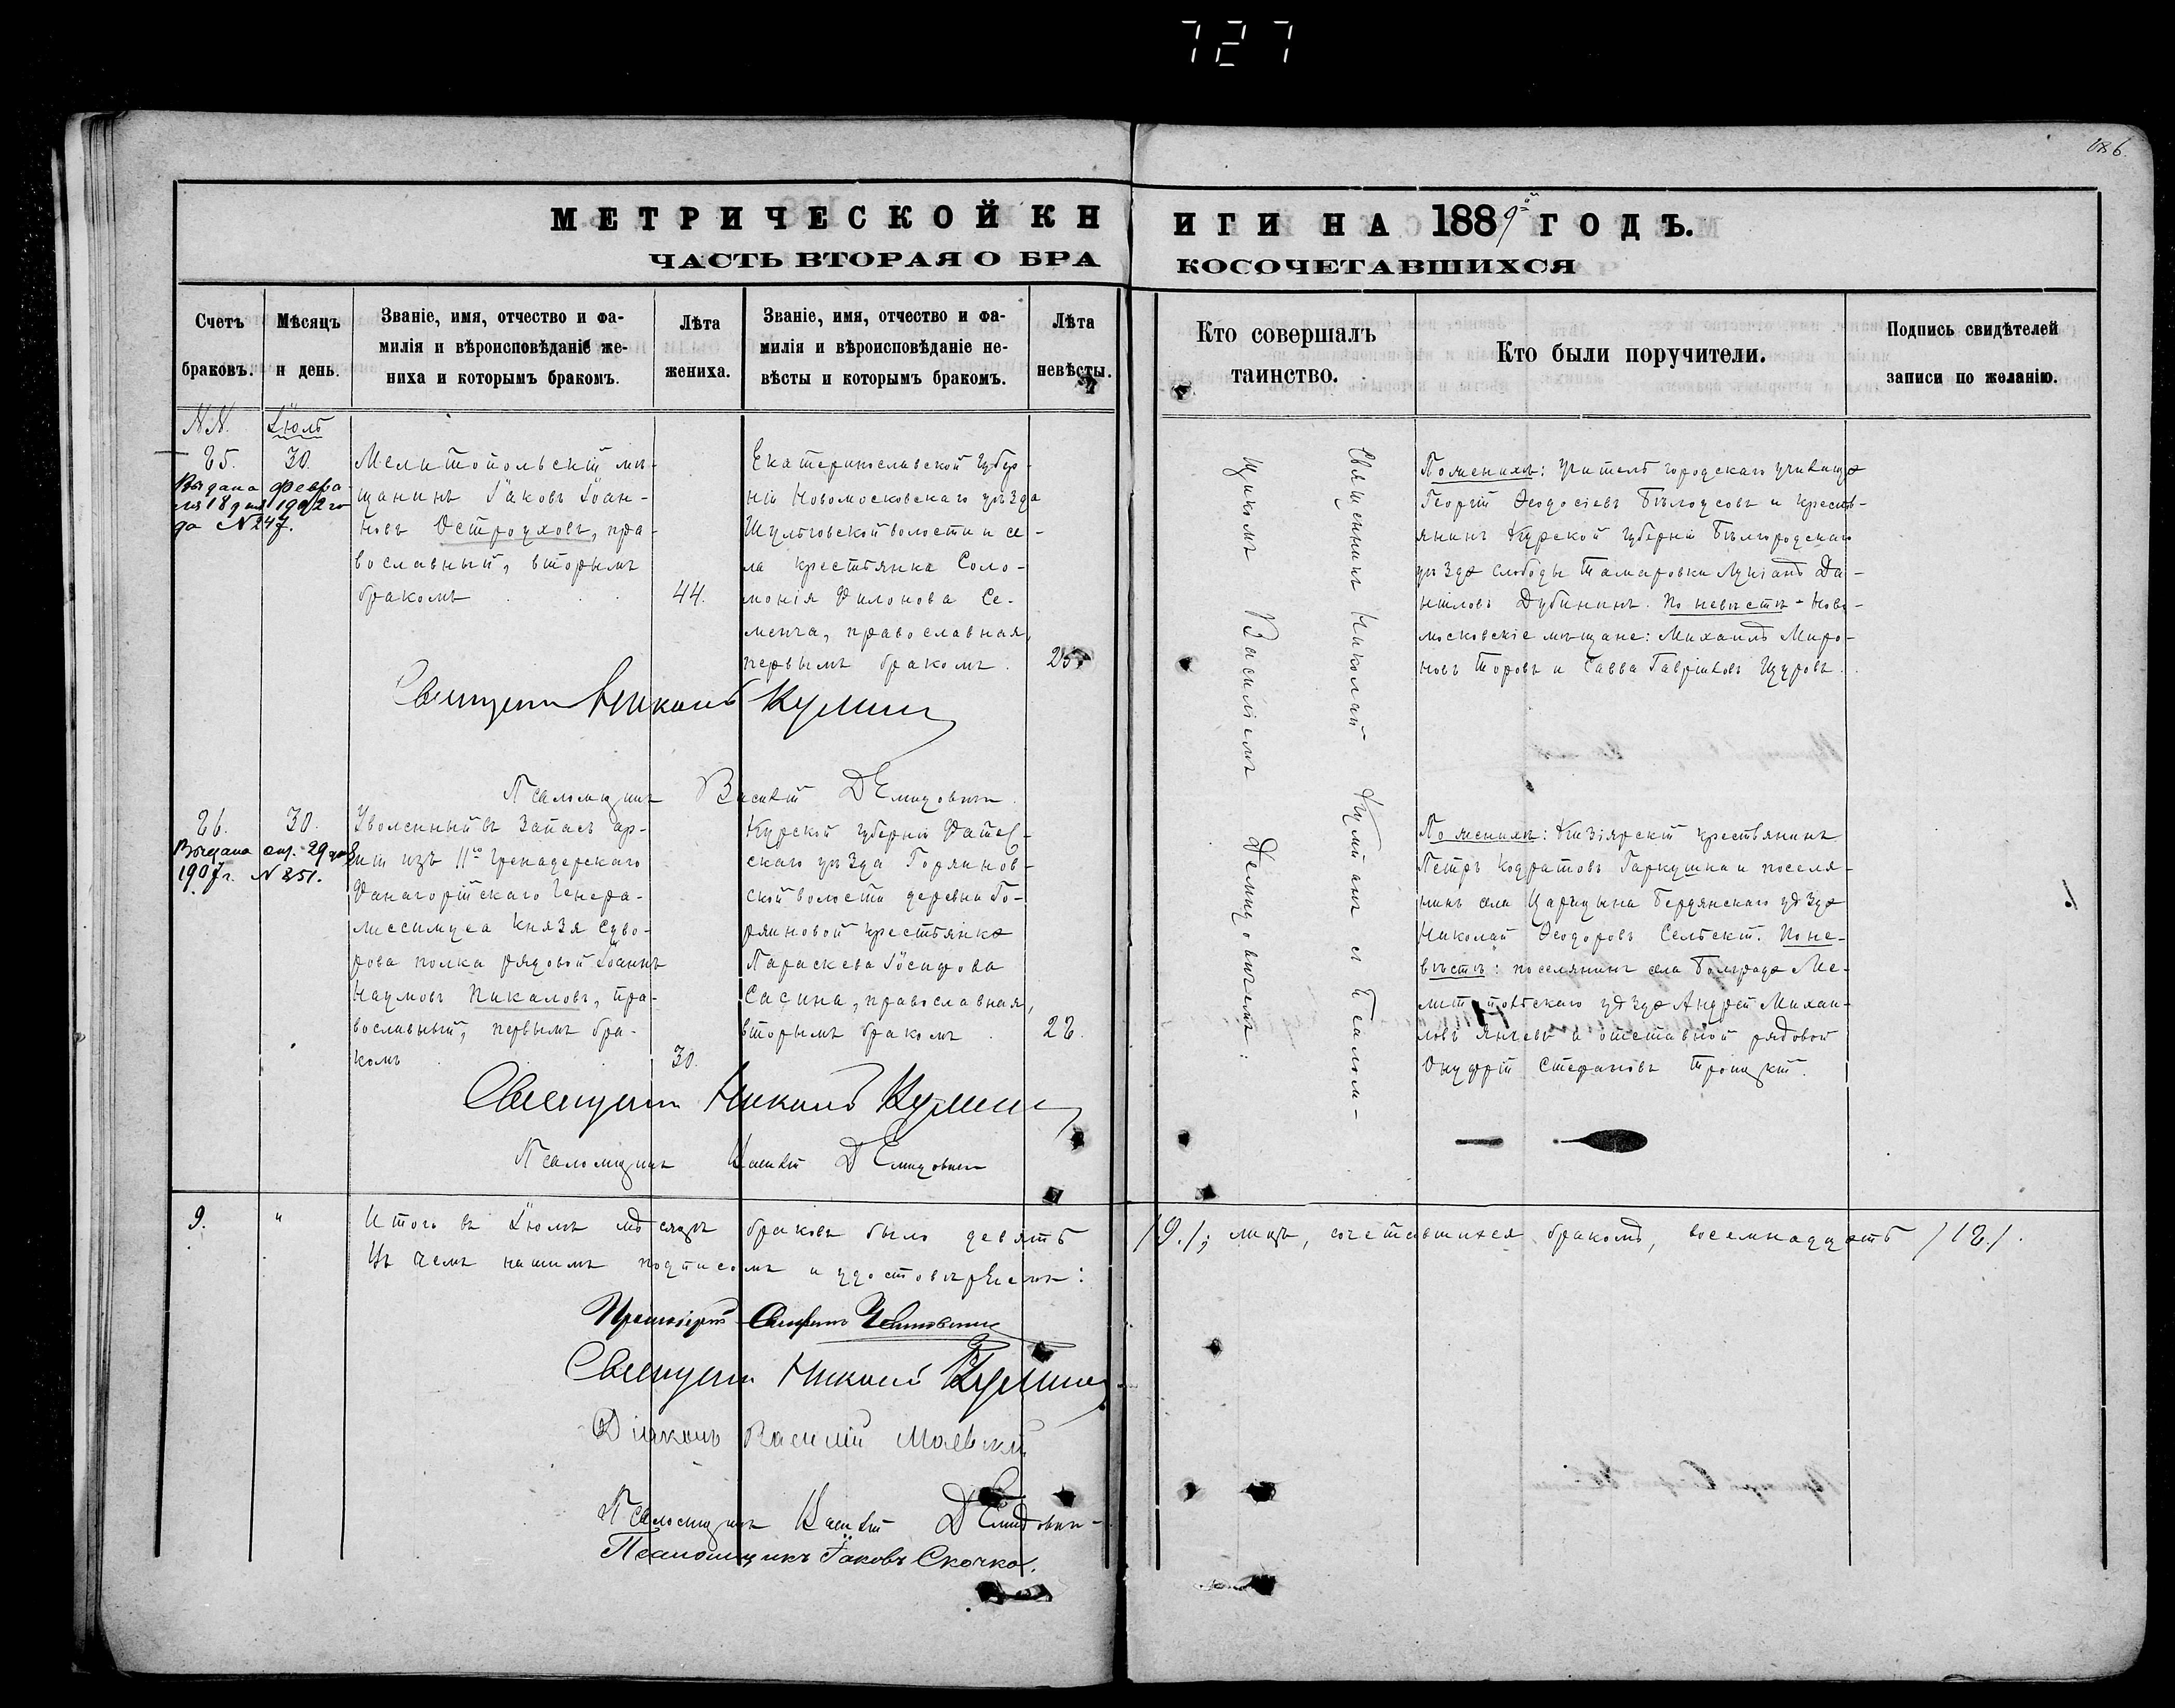 727
186.
МЕТРИЧЕСКОЙ КНИГИ НА 1889й ГОДЪ.
ЧАСТЬ ВТОРАЯ О БРАКОСОЧЕТАВШИХСЯ
Счетъ браковъ.
Мѣсяцъ и день.
Званіе, имя, отчество и фа-
милія и вѣроисповѣданіе же-
ниха и которымъ бракомъ.
Лѣта жениха.
Званіе, имя, отчество и фа-
милія и вѣроисповѣданіе не-
вѣсты и которымъ бракомъ.
Лѣта невѣсты.
Кто совершалъ
таинство.
Кто были поручители.
Подпись свидѣтелей
записи по желанію.
NN.
Іюль
25.
30.
Выдана Февра-
ля 18 дня 1902 го-
да N 247.
Мелитопольскій мѣ-
щанинъ Іаковъ Іоан-
новъ Остроуховъ, пра-
вославный, вторымъ
бракомъ
44.
Екатеринославской губер-
ніи Новомосковскаго уѣзда
волости и се-
ла крестьянка Соло-
монія Филонова Се-
менча, православная,
первымъ бракомъ.
Священникъ Николай Кулишъ
Псаломщикъ Василій Демидовичъ
Священникъ Николай и Псалом-
щикомъ Василіемъ Демидовичемъ:
По женихѣ: учитель городскаго училища
Георгій Ѳеодосіевъ Бѣлоусовъ и кресть-
янинъ Курской губерніи Бѣлгородскаго
уѣзда слободы Тамаровки Лукіанъ Да-
ниловъ Дубининъ. По невѣстѣ - Ново-
московскіе мѣщане: Михаилъ Миро-
новъ Торовъ и Савва Гавріиловъ Щуровъ.
26.
30.
Выдана 29
1907 г. N 251.
Уволенный въ запасъ ар-
міи изъ 11го Гренадерскаго
Фанагорійскаго Генера-
лиссимуса Князя Суво-
рова полка рядовой Іоаннъ
Наумовъ Пикаловъ, пра-
вославный, первымъ бра-
комъ
30.
Курской губерніи Фатеж-
скаго уѣзда Горяинов-
ской волости деревни Го-
ряиновой крестьянка
Параскева Іосифова
Сасина, православная,
вторымъ бракомъ
22.
Священникъ Николай Кулишъ
Псаломщикъ Василій Демидовичъ
По женихѣ: Кизіярскій крестьянинъ
Петръ Кодратовъ Гаркушка и поселя-
нинъ села Царицына Бердянскаго уѣзда
Николай Ѳеодоровъ Сельскій. По не-
вѣстѣ: поселянинъ села Болграда Ме-
литопольскаго уѣзда Андрей Михаи-
ловъ и отставной рядовой
Онуфрій Стефановъ Троицкій.
9.
"
Итого въ Іюлѣ мѣсяцѣ браковъ было девять /9./; лицъ, сочетавшихся бракомъ, восемнадцать /18./.
Въ чемъ нашимъ подписомъ и удостовѣряемъ:
Протоіерей
Священникъ Николай Кулишъ
Діаконъ Василій Маевскій
Псаломщикъ Василій Демидовичъ
Псаломщикъ Іаковъ Скочко.